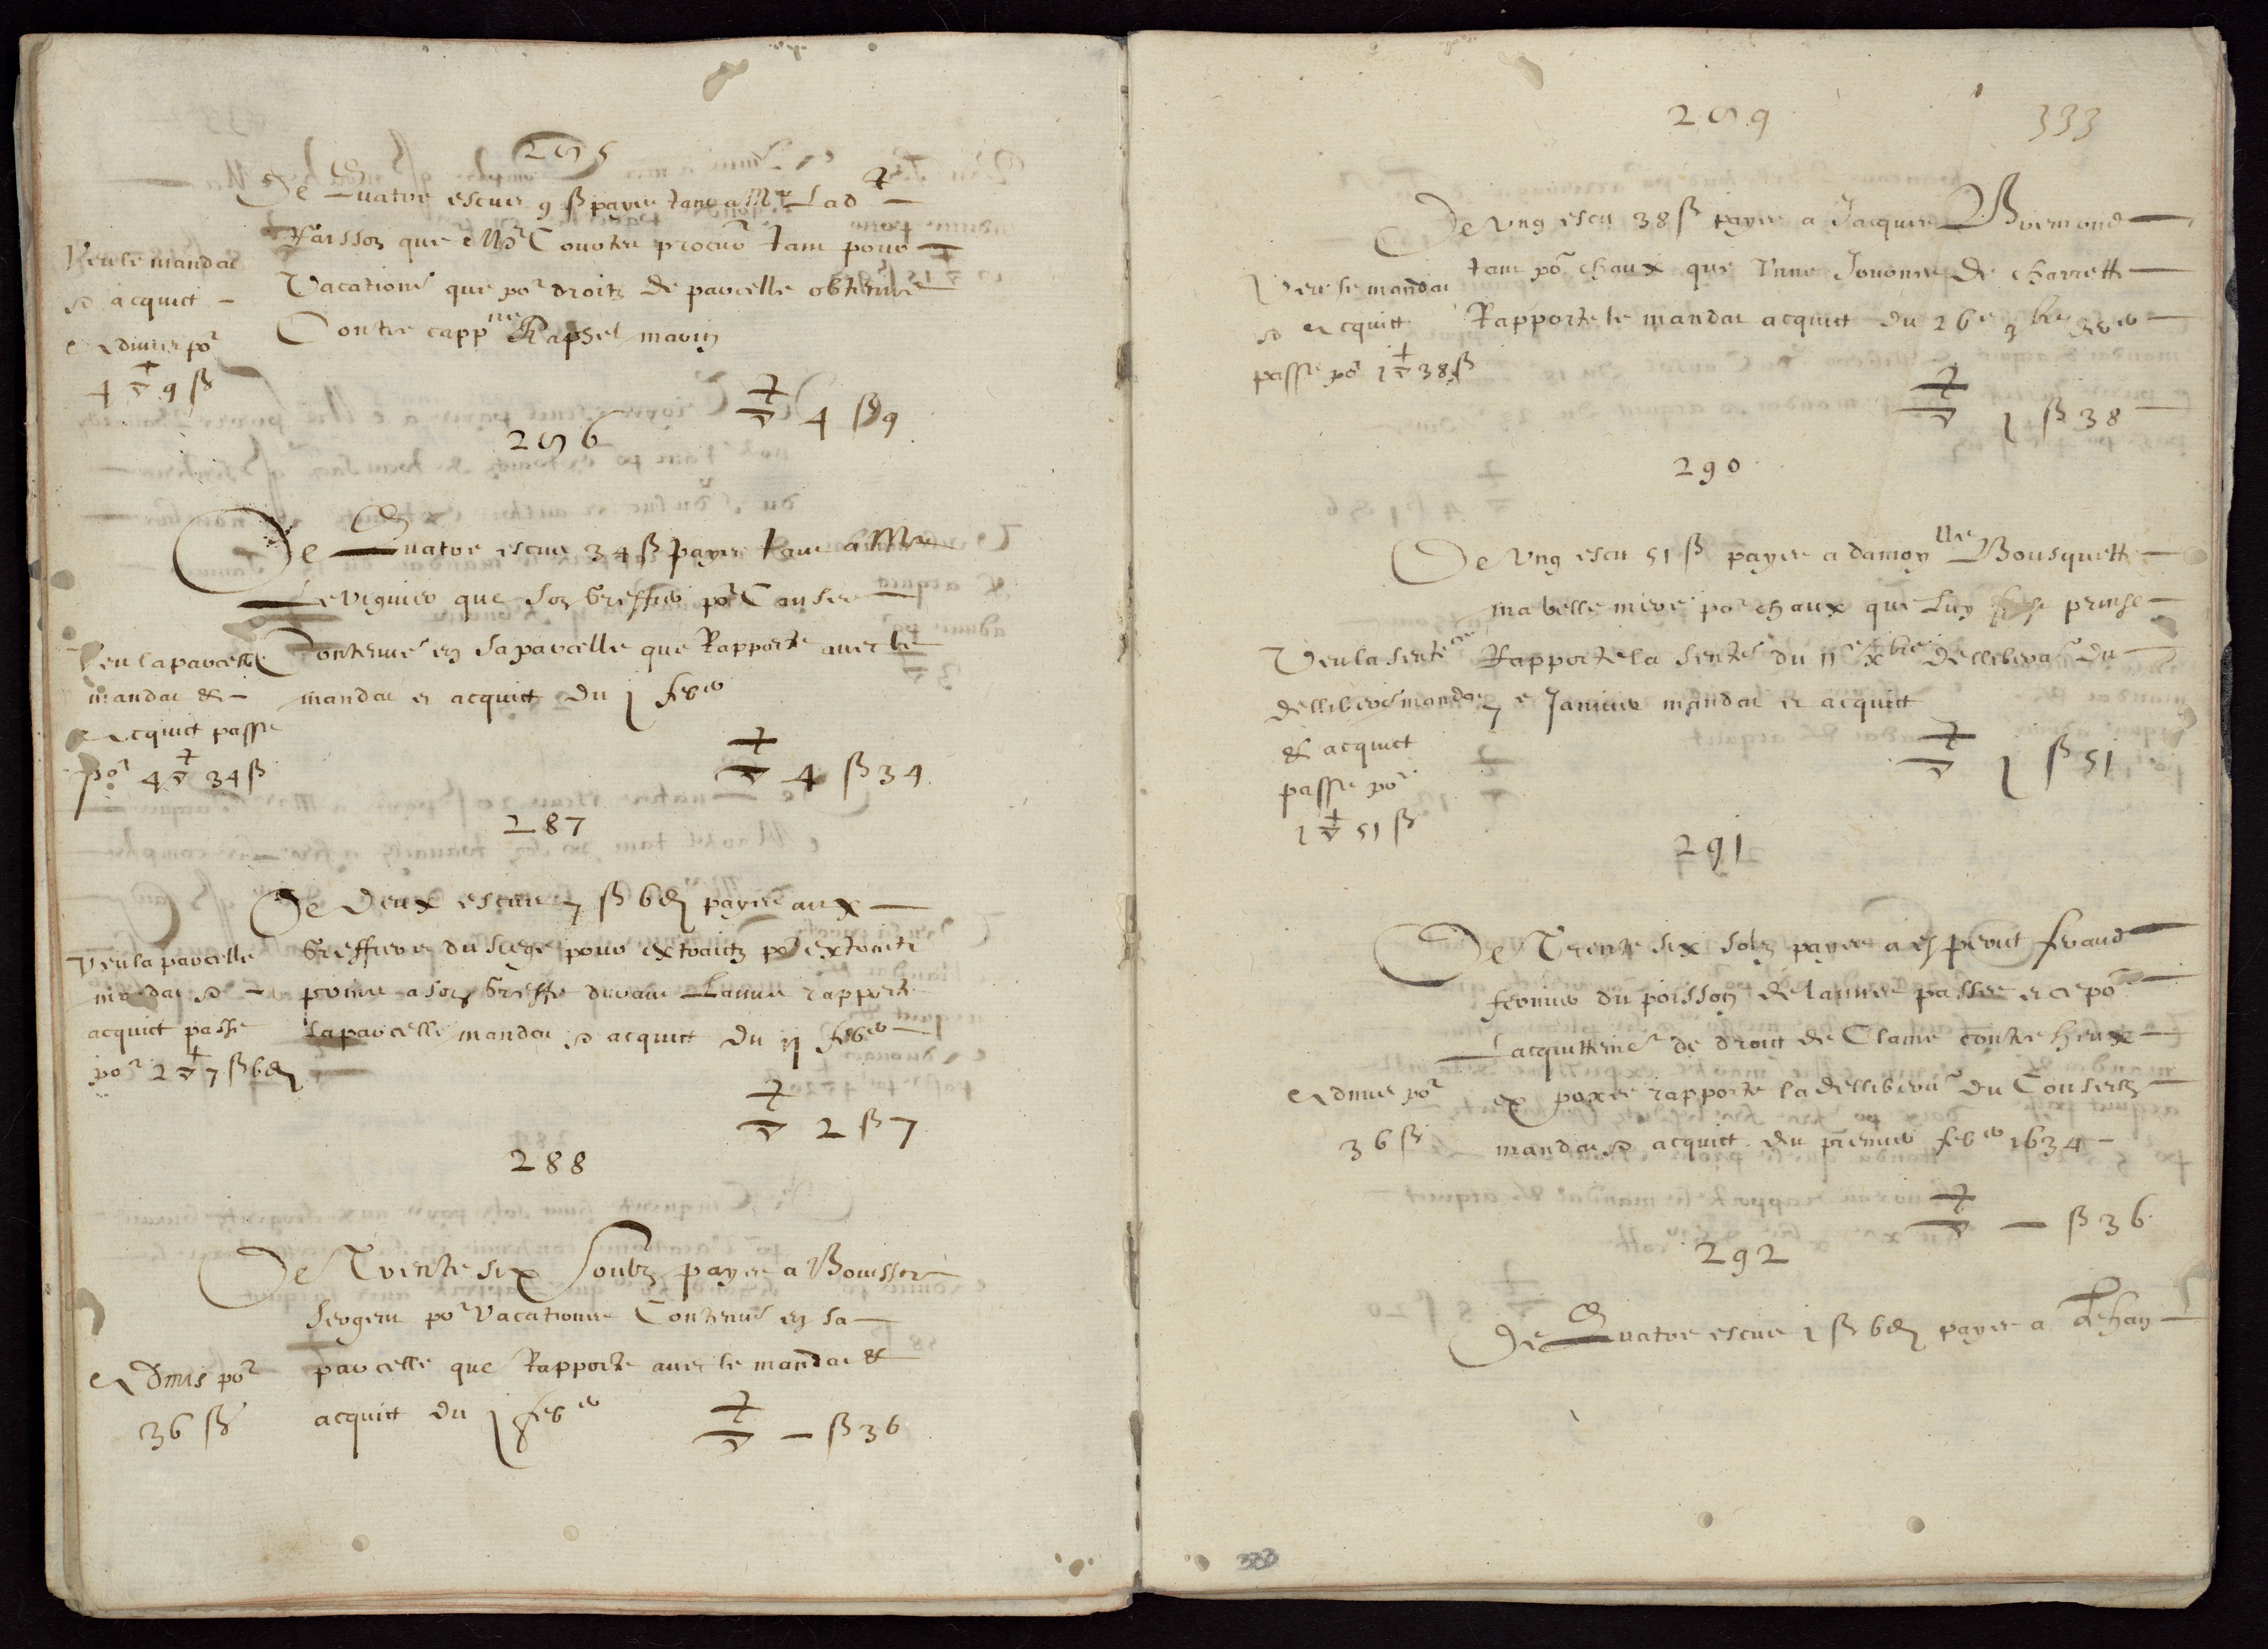 285
De Quatre escus 9 ß payes tant a Mre Lad
Raisson que Mre procur tant pour
Vacations que por droitz de parcelle obtenue
Contre cappne Raphel marin
Veu le mandat
et acquict
Admis por
4 9 ß
4 ß 9
286
De Quatre escus 34 ß payes tant a Mre
Leviguier que son Greffier por Causes
Contenues en sa parcelle que Rapporte avec le
mandat et acquict du j febvr
Veu la parcelle
mandat &
Acquict passe
por 4 34 ß
4 ß 34
287
De Deux escus 7 ß 6 d payes aux
Greffiers du siege pour extraictz por extraictz
prinse a son Greffe durant Lannee rapporte
la parcelle mandat et acquict du 11 febvr
Veu la parcelle
mandat et
acquict passe
por 2 7 ß 6 d
2 ß 7
288
De Trente six soulz payes a Bouisson
sergent por Vacations Contenues en sa
parcelle que Rapporte avec le mandat &
acquict du j febvr
Admis por
36 ß
– ß 36
289
333
De Ung escu 38 ß payes a Jacques Briemond
tant por chaux que Journee de charrette
Rapporte le mandat acquict du 26e 9bre
Veu le mandat
et Acquict
passe por 1 38 ß
1 ß 38
290
De Ung escu 51 ß payes a damoylle Bousquette
ma belle mere por chaux que Luy prinse
Rapporte la sentce du 11e xbre delliberaon du
7e Janvier mandat et acquict
Veu la sentce
delliberaon mandat
& acquict
passe por
1 51 ß
1 ß 51
291
De Trente six solz payes a feraud
fermier du poisson de lannee passee et ce por
Lacquittement de droict de Clame contre
rapporte la delliberaon du Conseil
mandat et acquict du premier febvr 1634
Admis por
36 ß
– ß 36
292
De Quatre escus 1 ß 6 d payes a Jehan
383